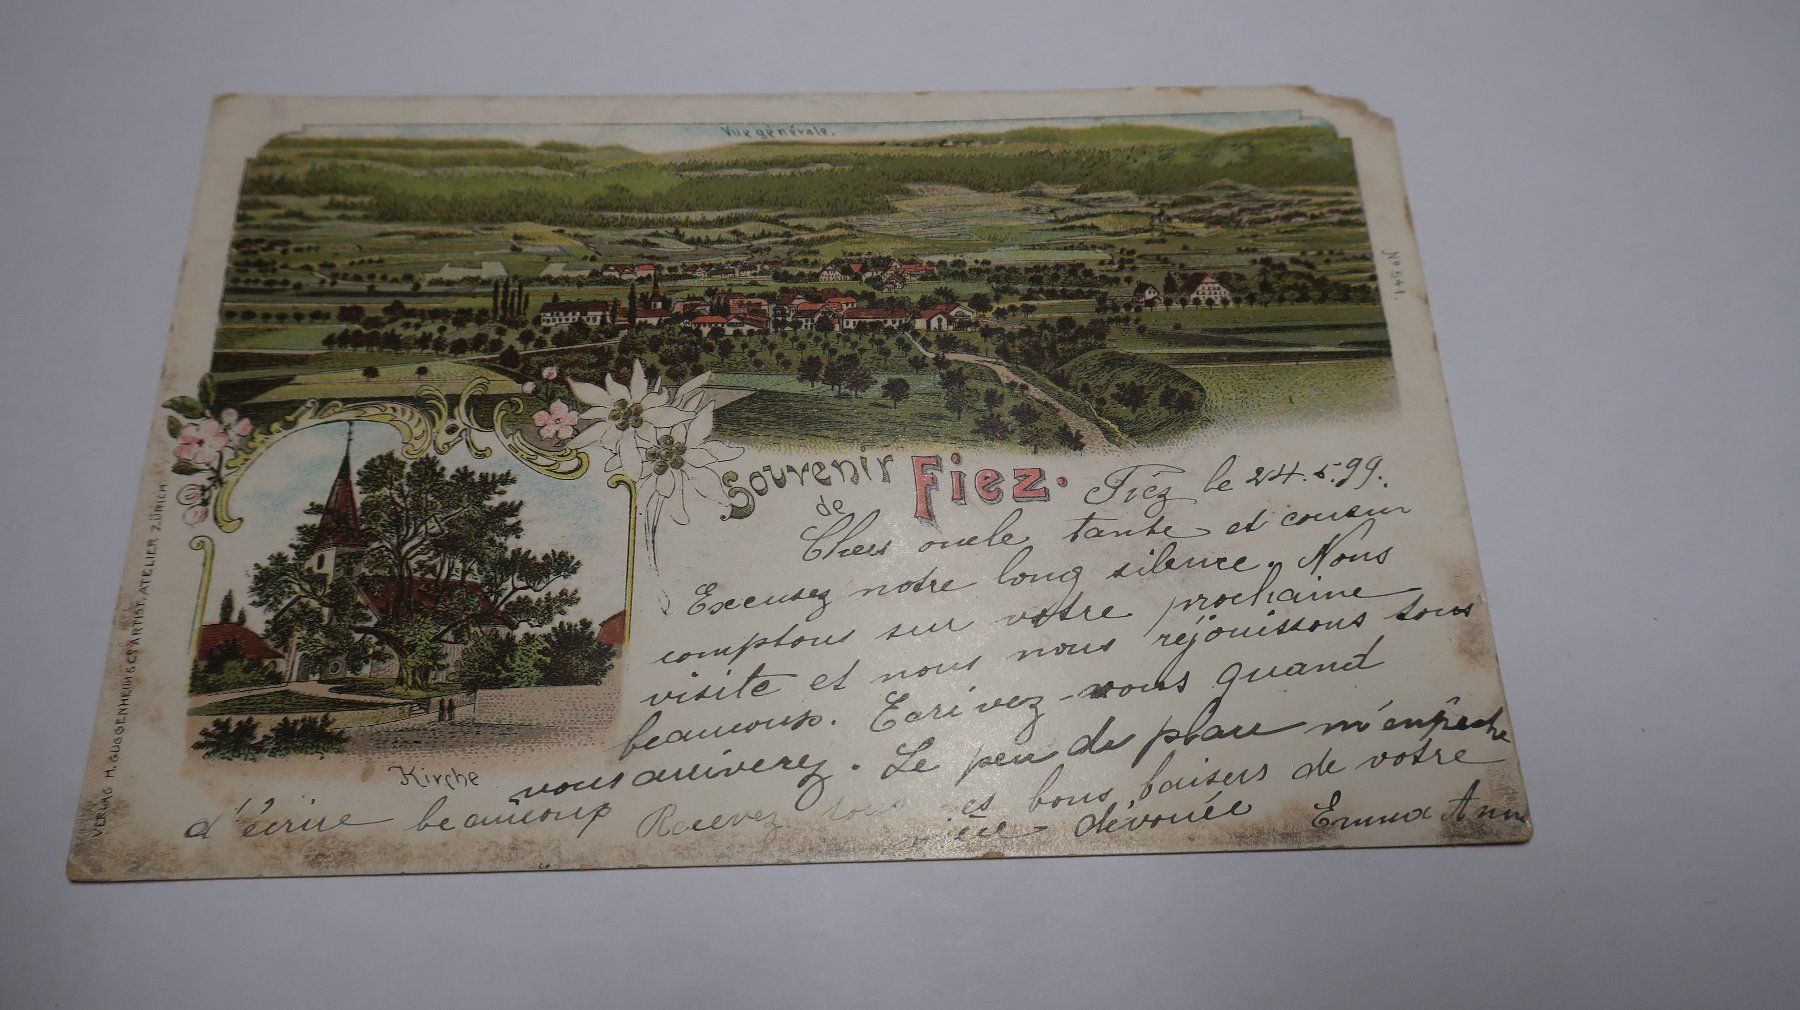 Vue générale.
Nº 541.
Souvenir
de
Fiez.
Fiez le 24.5.99.
Chers oncle tante et cousin
Excusez notre long silence. Nous
comptons sur votre prochaine
visite et nous nous réjouissons tous
beaucoup. Ecrivez-nous quand
vous arriverez. Le peu de place m'empêche
d'écrire beaucoup Recevez tous bons baisers de votre
nièce dévouée Emma
Kirche
VERLAG H. GUGGENHEIM & Cº ARTIST. ATELIER ZÜRICH